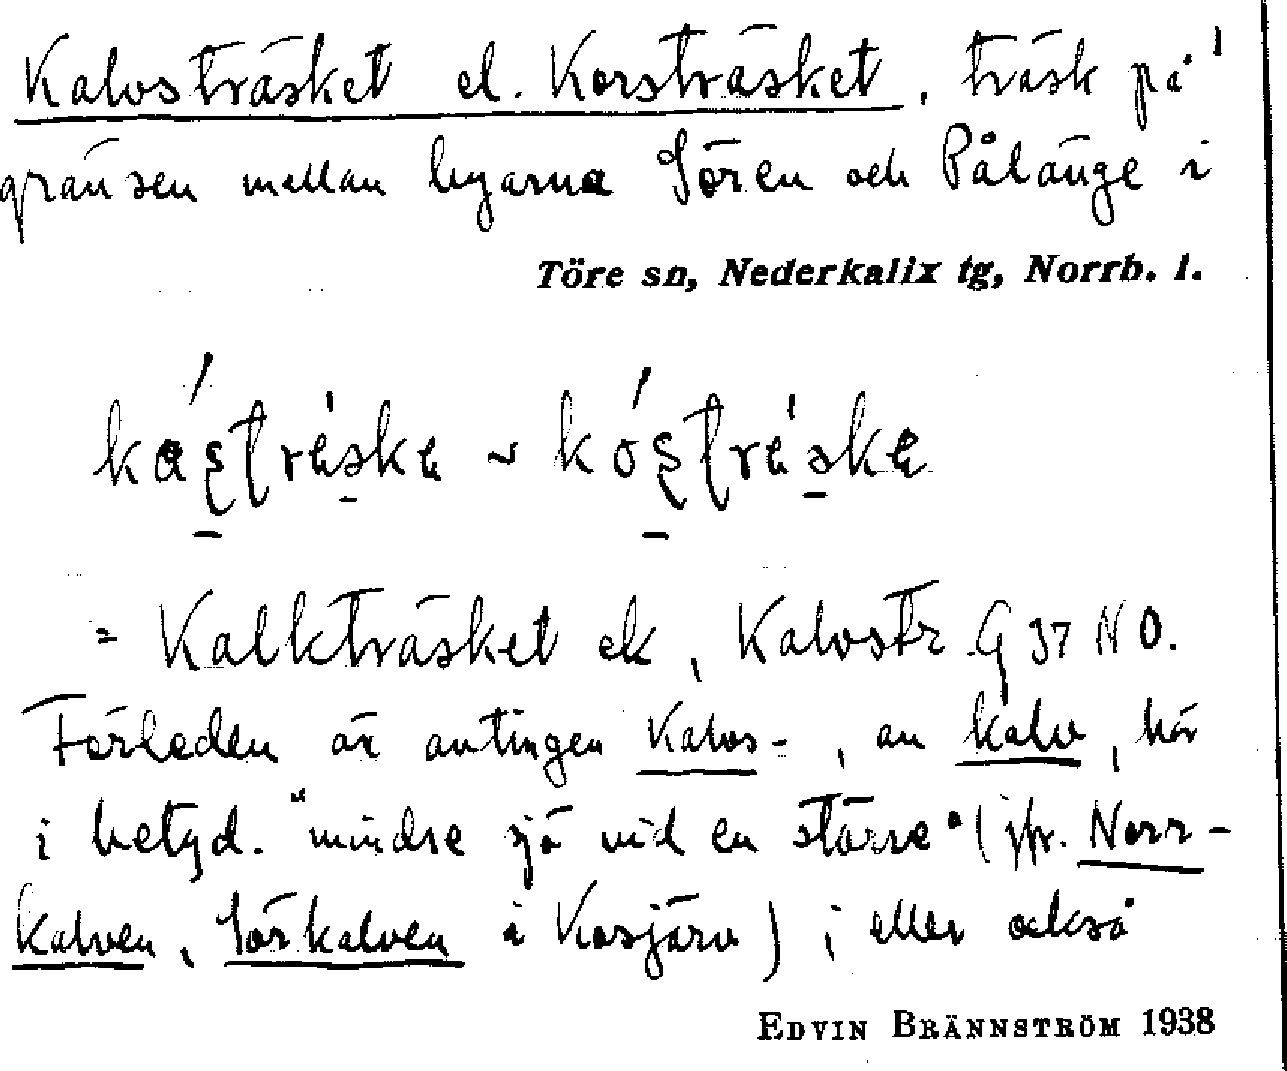 Kalvsträsket el. Korsträsket, träsk på
gränsen mellan byarna Sören och Pålänge i
Töre sn, Nederkalix tg, Norrb. l.
= Kalkträsket ek, Kalvstr G 37 NO.
Förleden är antingen Kalvs-, av kalv, här
i betyd. "mindre sjö vid en större" (jfr. Norr-
kalven, Sörkalven i Kosjärv); eller också
EDVIN BRÄNNSTRÖM 1938